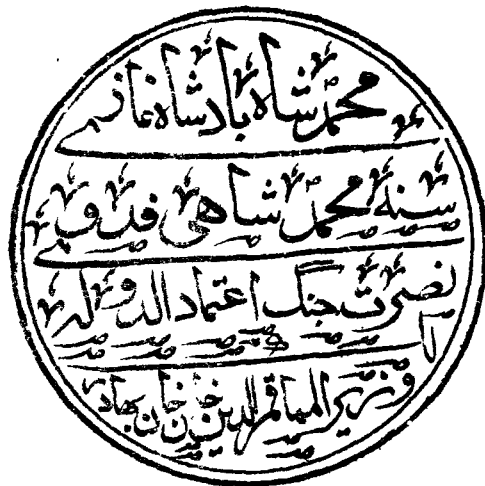 محمد شاه بادشاه غازی
سنه محمد شاهی فدوی
نصرت جنگ اعتماد الدوله
وزیر الممالک قمر الدین خان بهادر